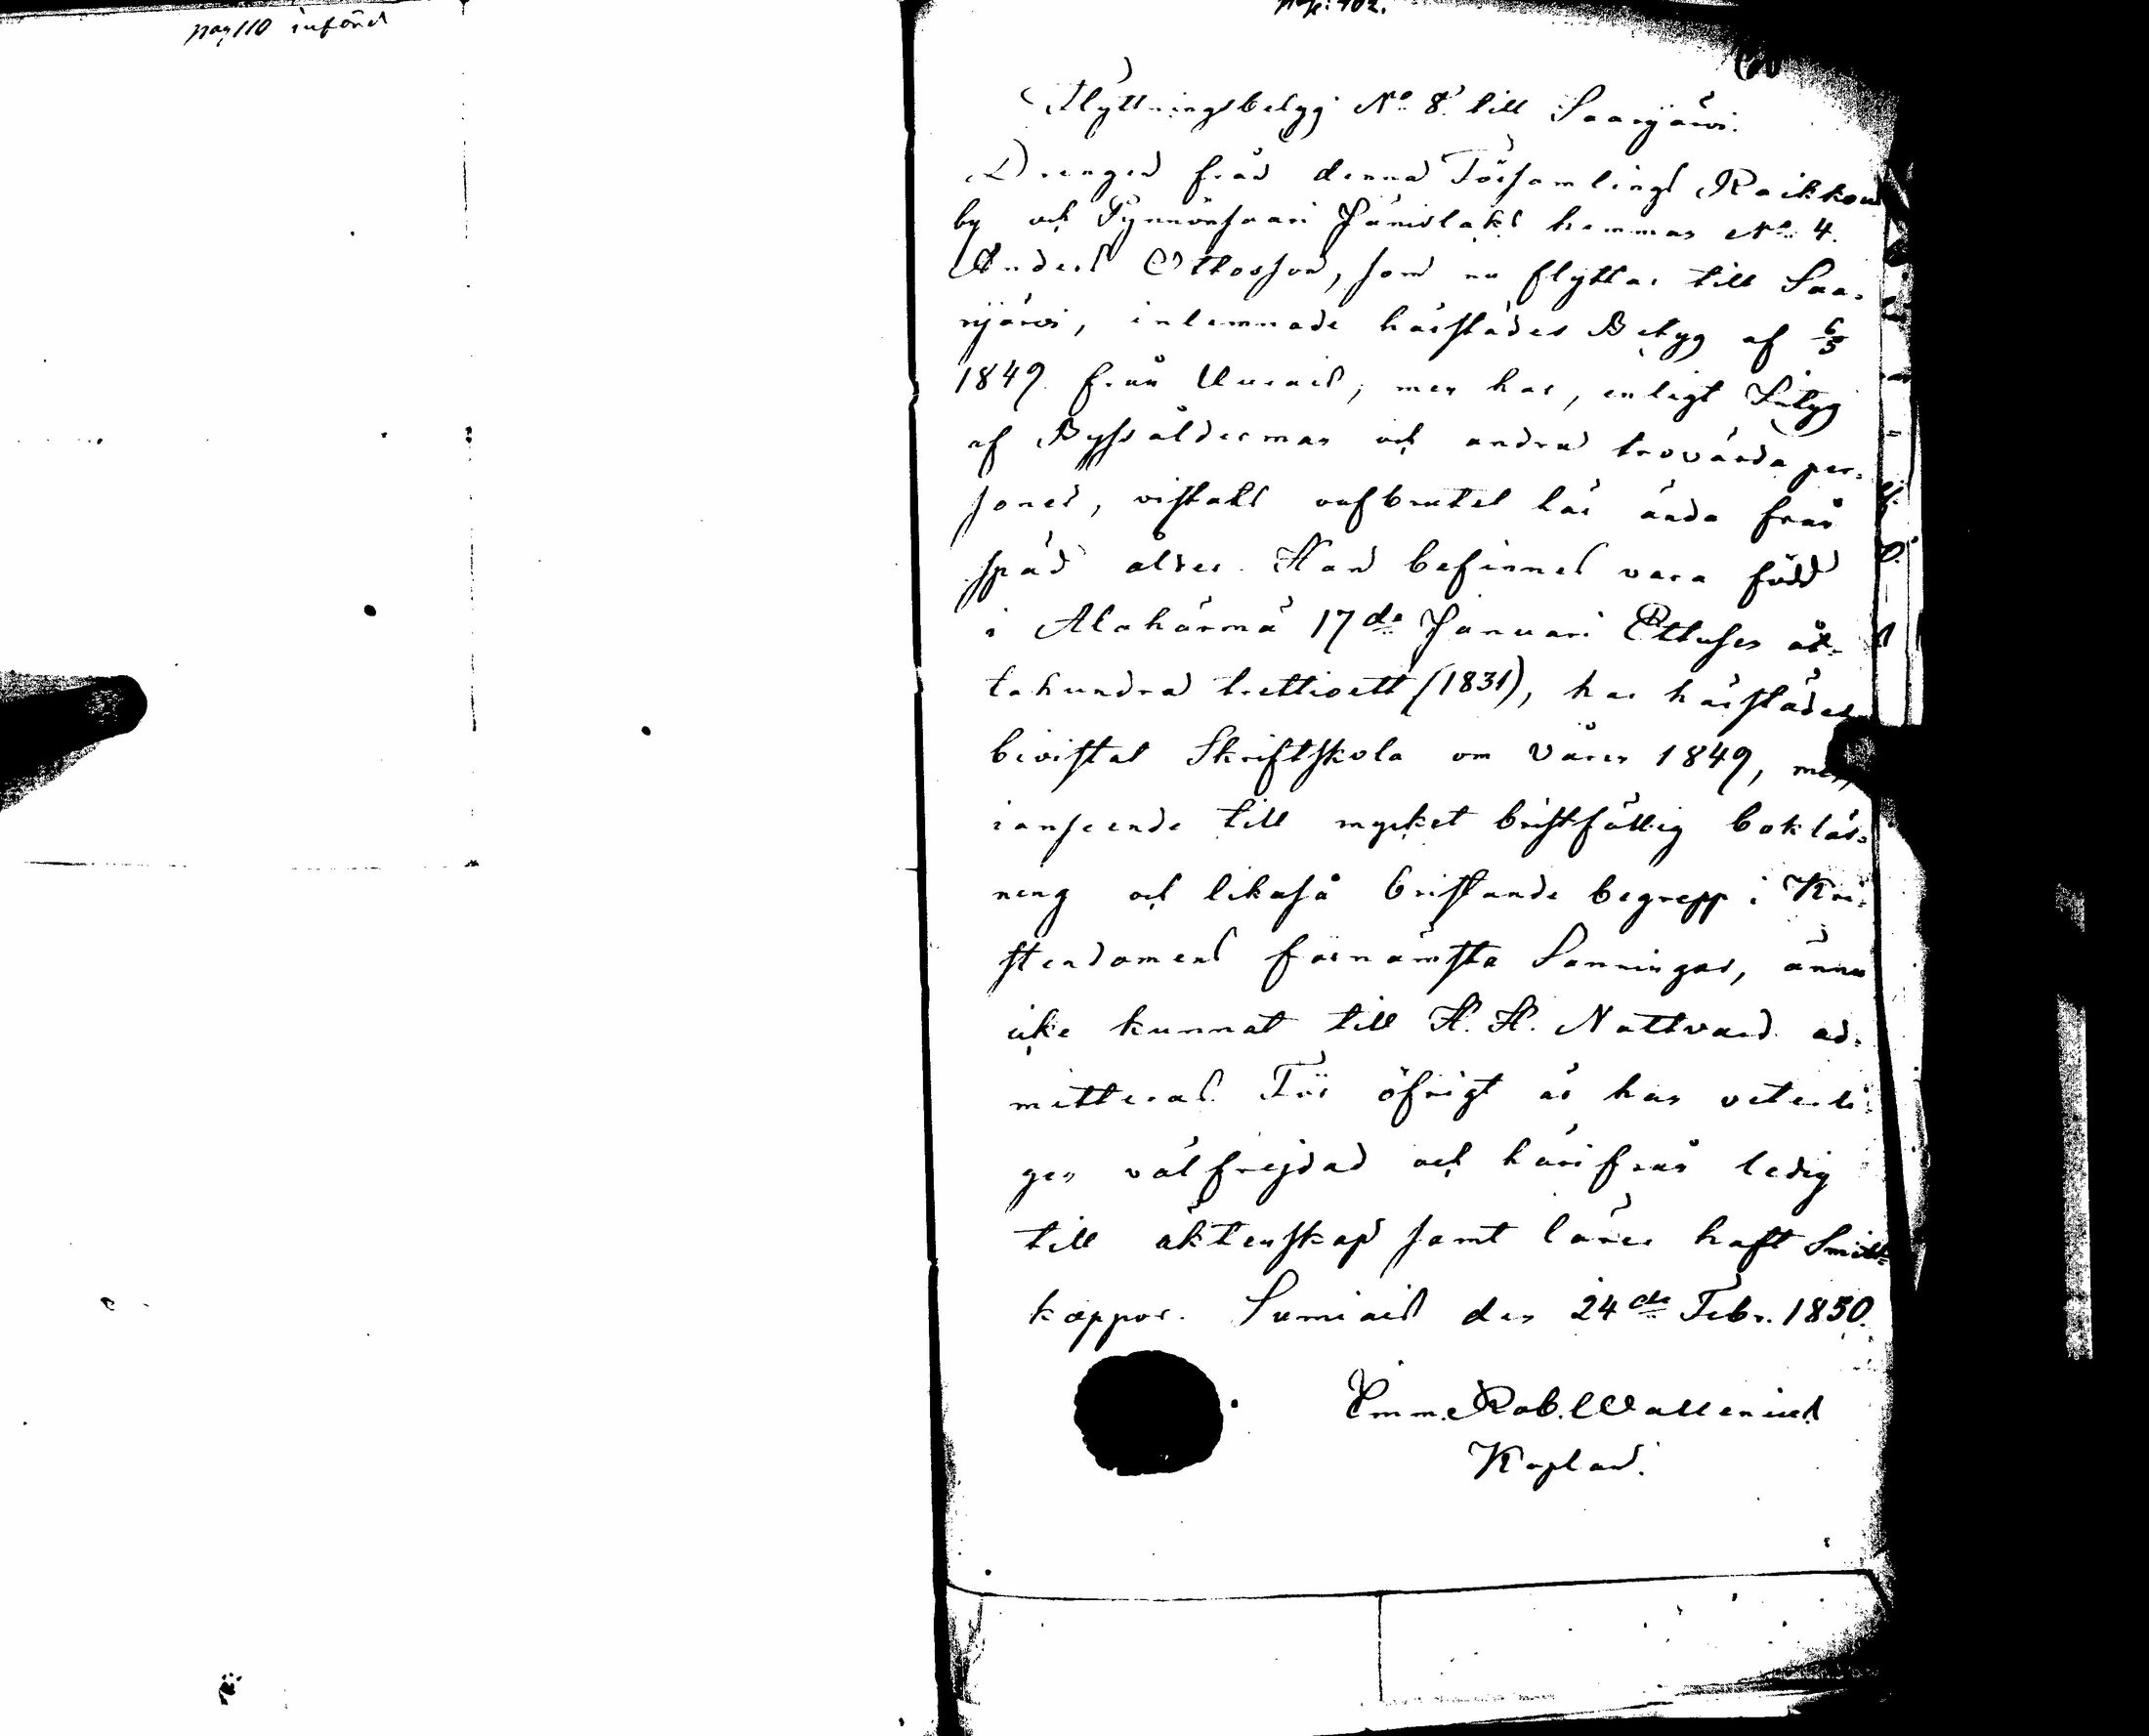 pag 110 införd
Flyttningsbetyg No 8. till Saarijärvi.
Drengen från denna Församlings Raikkous
by och Pynnönsaari Jänislaks hemman No 4.
Anders Ottosson, som nu flyttar till Saa-
rijärvi, inlemnade härstädes Betyg af 6/5
1849 från Uurais, men har, enligt Intyg
af Bysålderman och andra trovärda per-
soner, vistats oafbrutet här ända från
späd ålder. Han befinnes vara född
i Alahärmä 17de Januari Ettusen åt-
tahundra trettioett (1831), har härstädes
bevistat Skriftskola om Våren 1849, men,
i anseende till mycket bristfällig bokläs-
ning och likaså bristande begrepp i Kri-
stendomens förnämsta Sanningar, ännu
icke kunnat till H. H. Nattvard ad-
mitteras. För öfrigt är han veterli-
gen välfrejdad och härifrån ledig
till äktenskap samt lärer haft Smitt-
koppor. Sumiais den 24de Febr. 1850.
Emm. Rob. Wallenius
Kaplan.